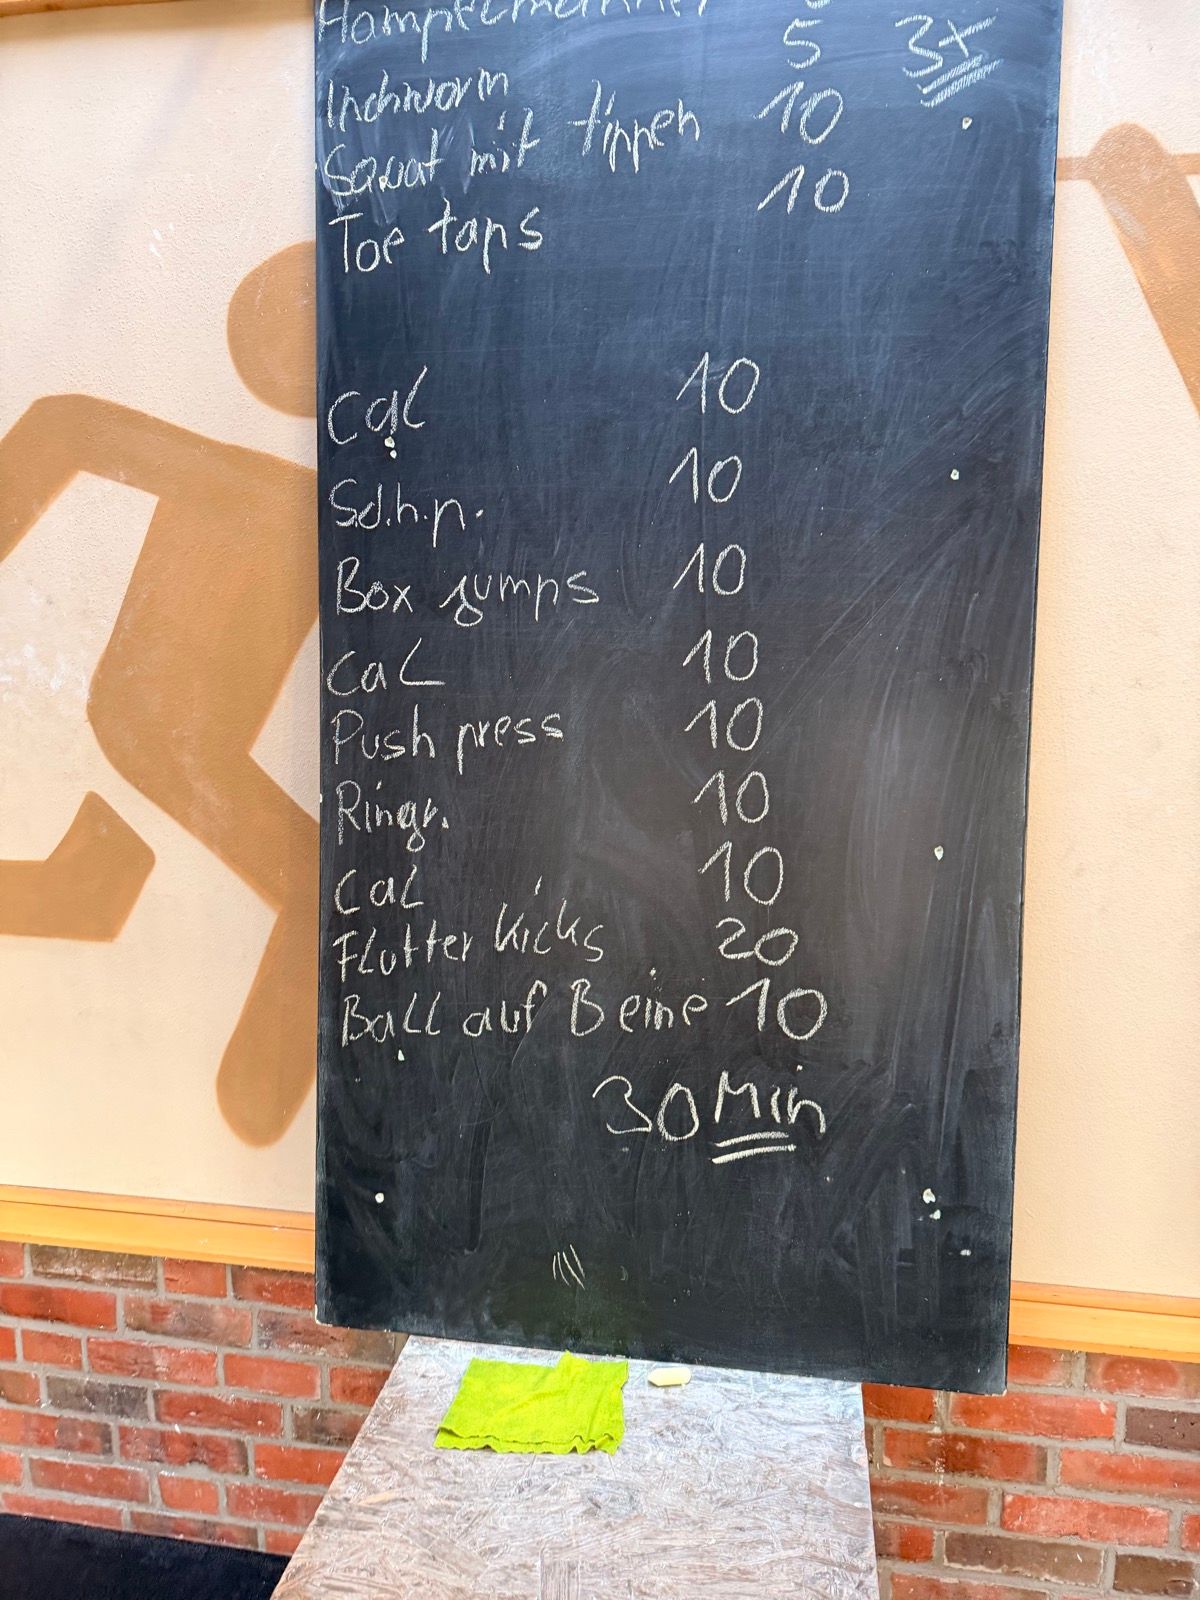 Hampelmänner
Inchworm 5 3x
Squat mit tippen 10
Toe taps 10
Cal 10
S.d.h.p. 10
Box jumps 10
Cal 10
Push press 10
Ringr. 10
Cal 10
Flutter kicks 20
Ball auf Beine 10
30 Min